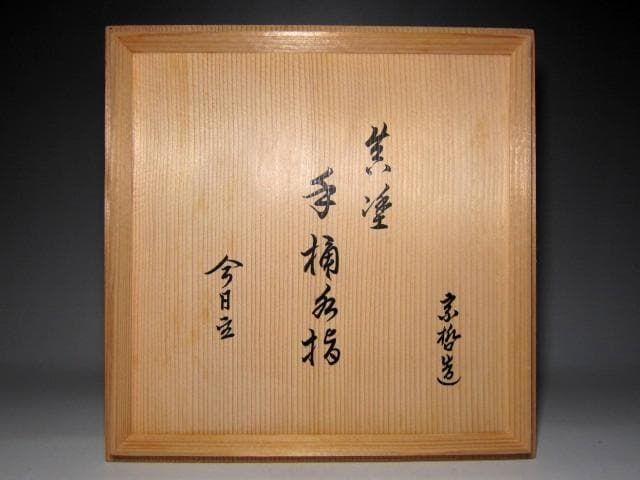 宗哲造
真塗
手桶水指
今日主